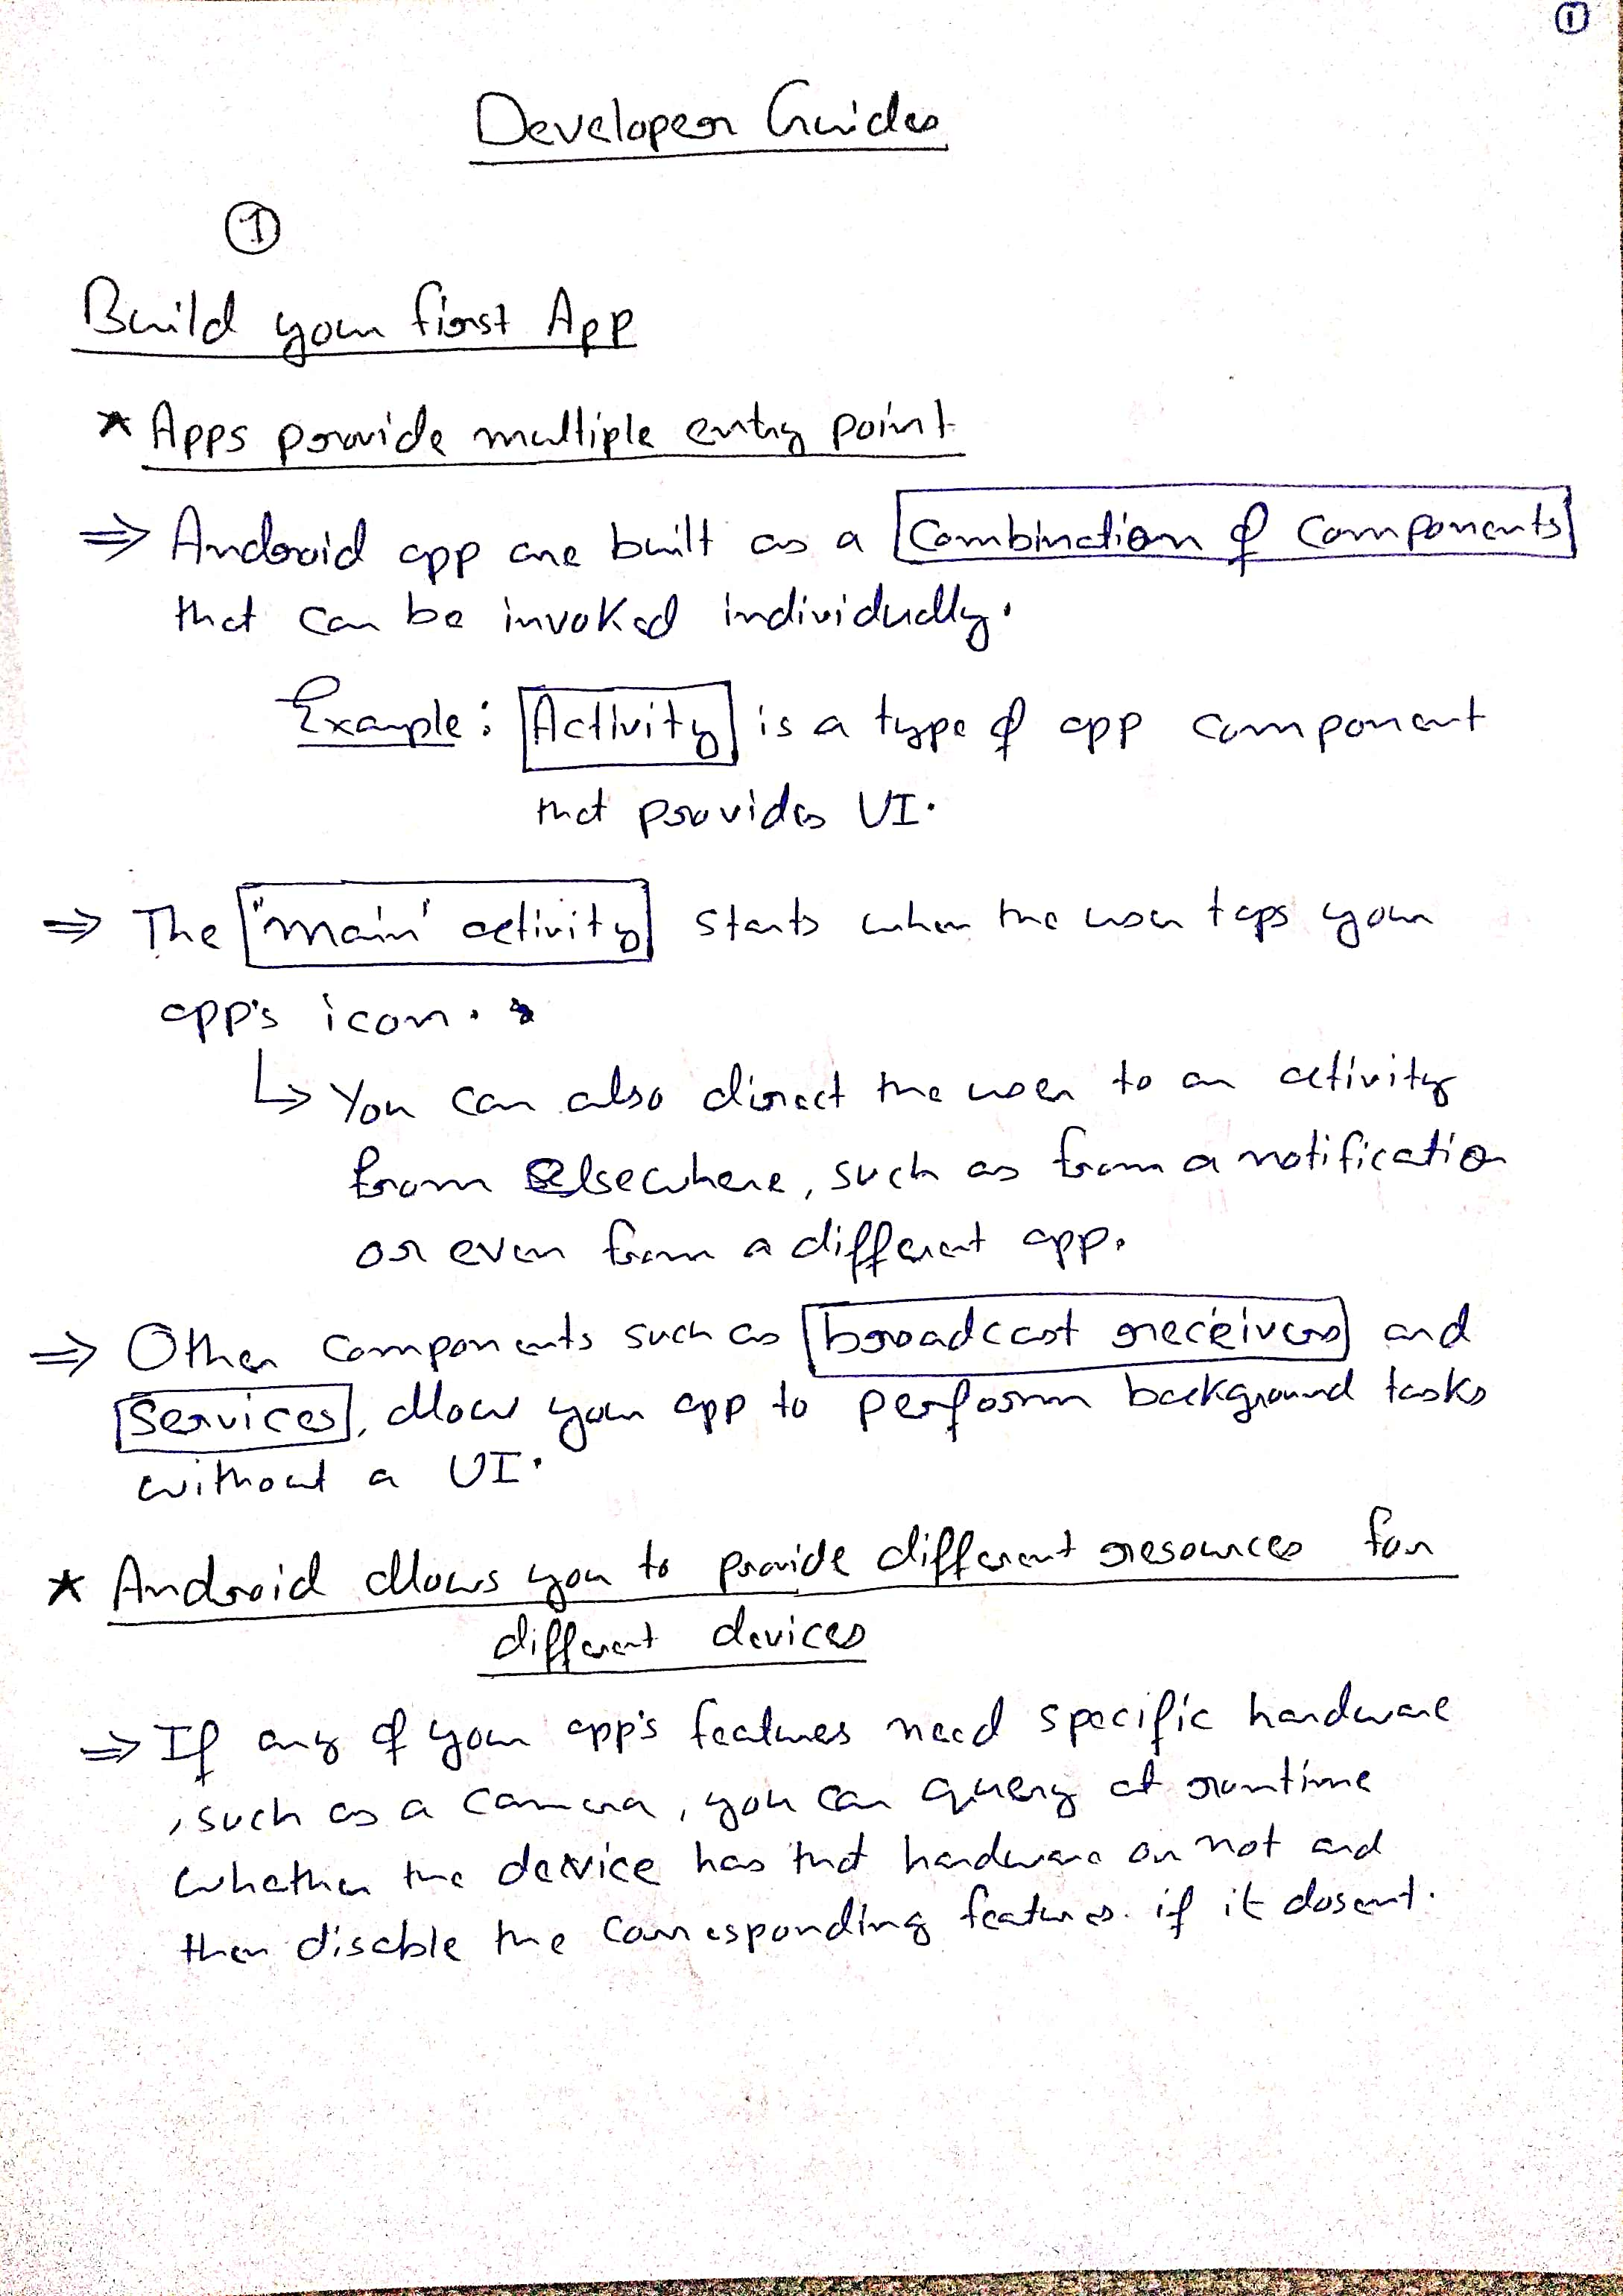 1
Developer Guides
1
Build your first App
* Apps provide multiple entry point
⇒ Android app are built as a Combination of Components
that can be invoked individually.
Example: Activity is a type of app component
that provides UI.
⇒ The "main' activity starts when the user taps your
app's icon.
↳ You can also direct the user to an activity
from elsewhere, such as from a notification
or even from a different app.
⇒ Other components such as broadcast receivers and
Services, allow your app to perform background tasks
without a UI.
* Android allows you to provide different resources for
different devices
⇒ If any of your app's features need specific hardware
, such as a camera, you can query at runtime
whether the device has that hardware or not and
then disable the corresponding features. if it dosent.